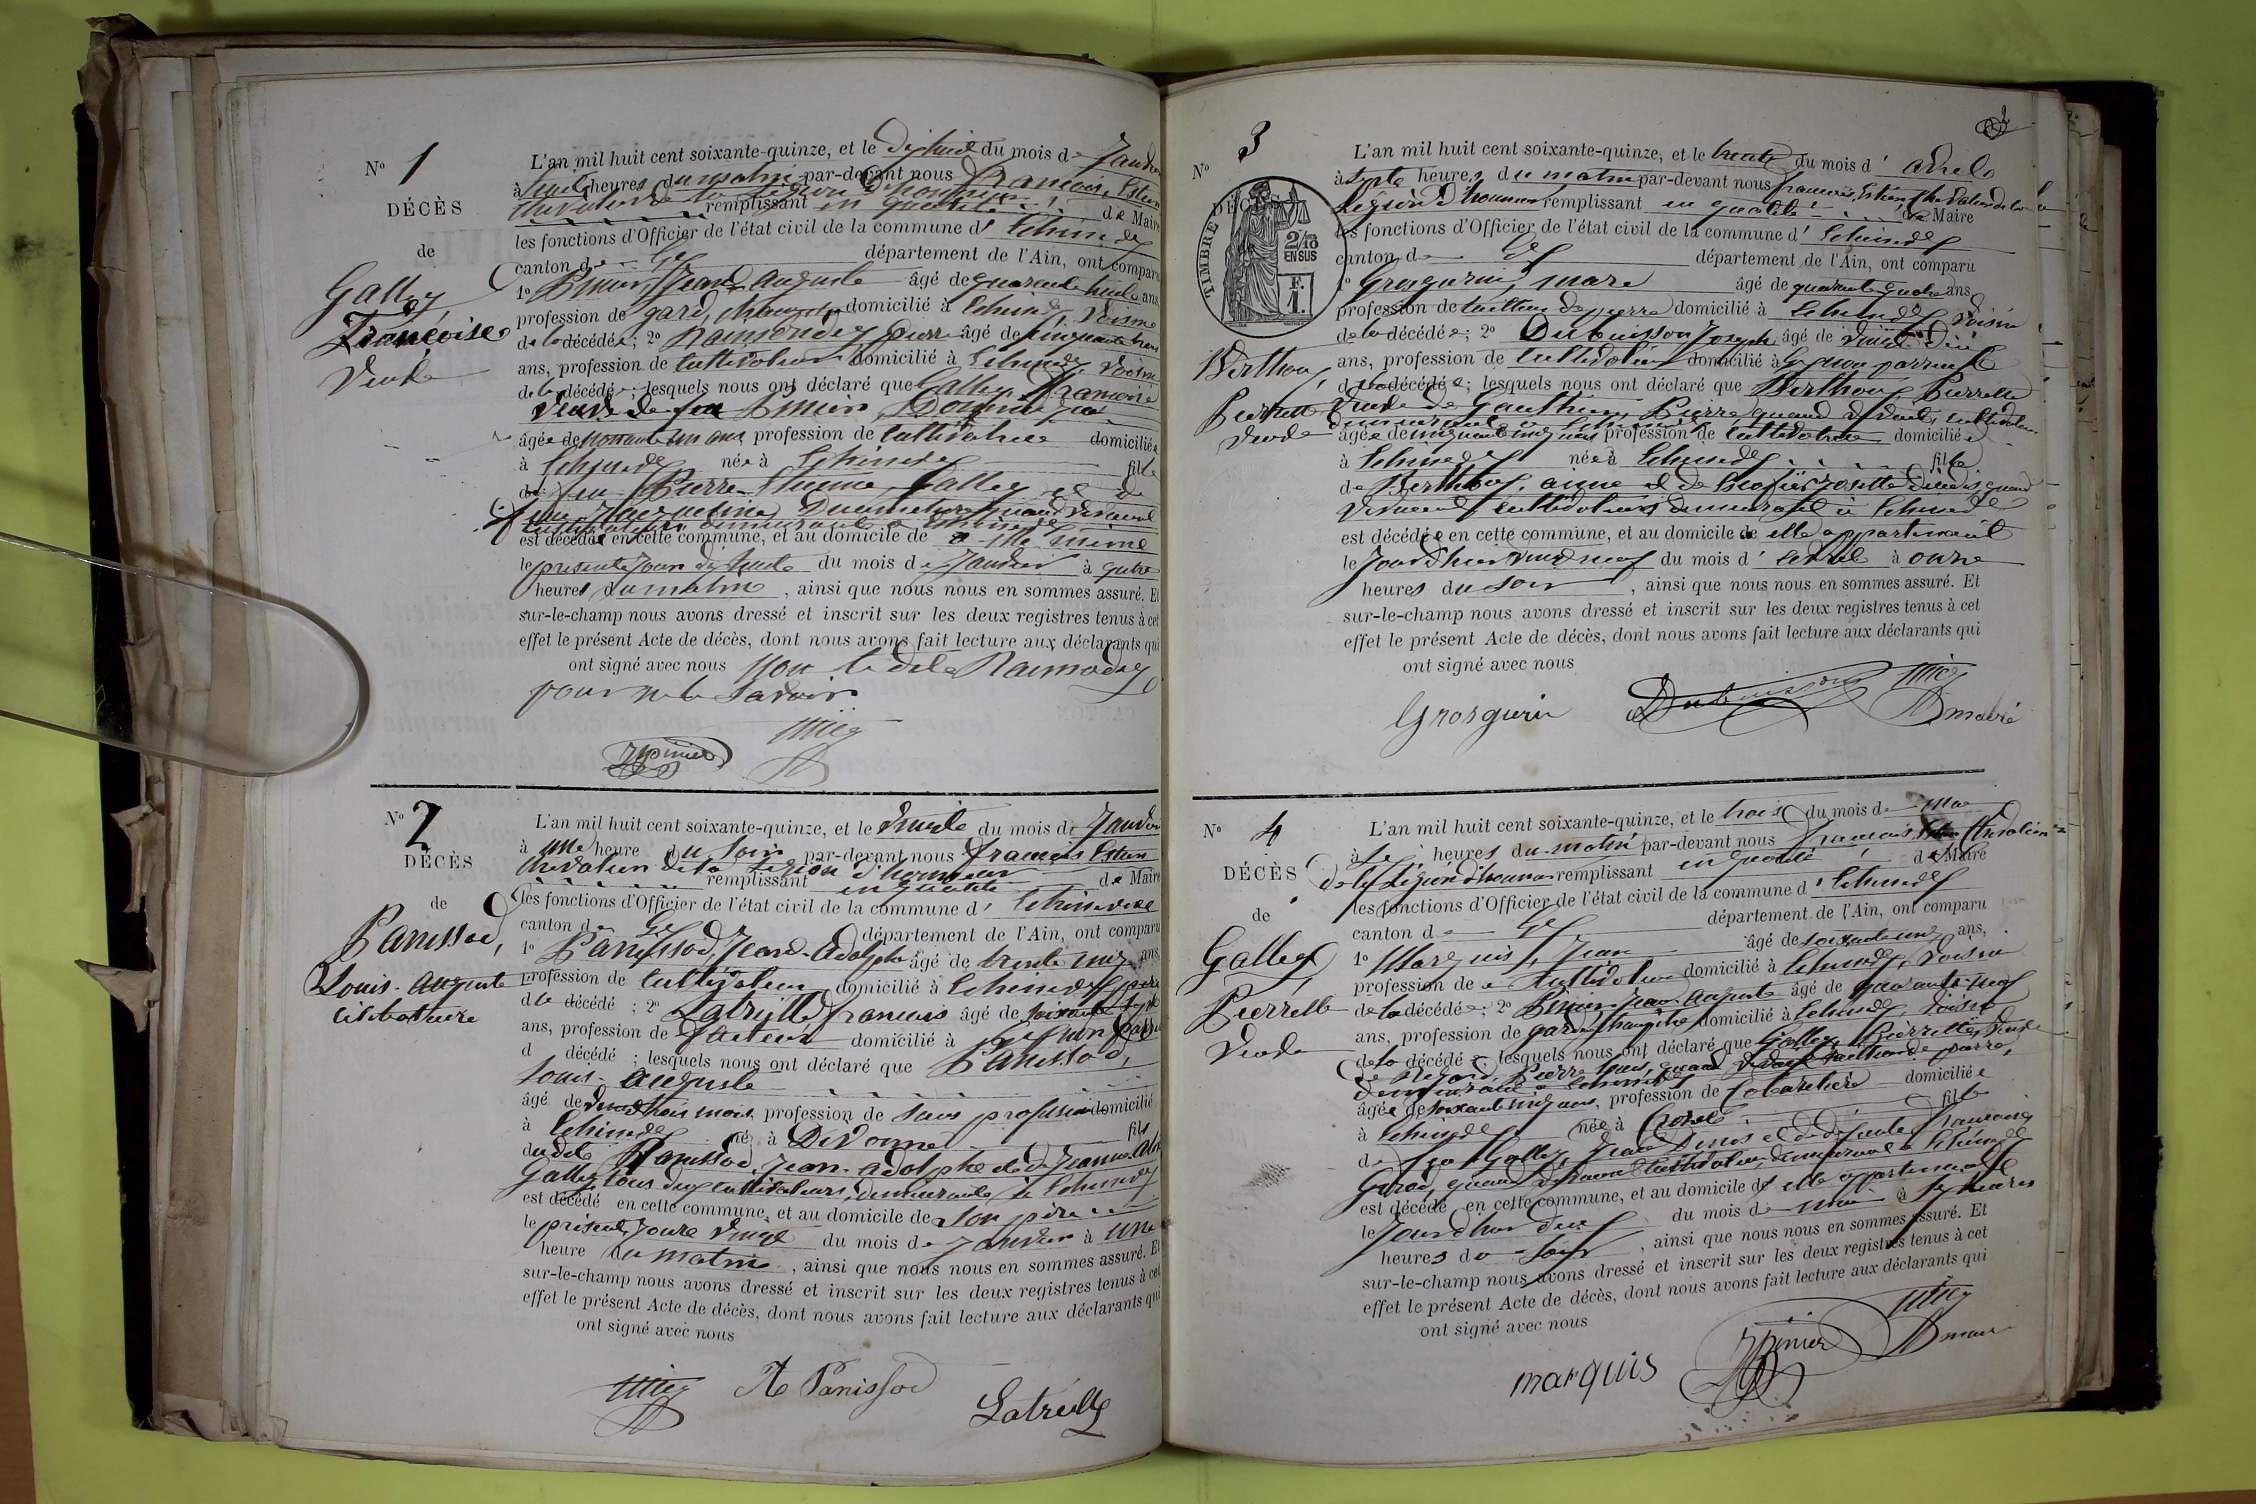 N° 1
DÉCÈS
de
Galley
Françoise
Veuve
L'an mil huit cent soixante-quinze, et le dixhuit du mois de Janvier
à huit heures du matin par-devant nous François Estien
chevalier de la Légion d'honneur
remplissant en qualité de Maire
les fonctions d'Officier de l'état civil de la commune d' Echenevex
canton de Gex département de l'Ain, ont comparu
1° Jean Auguste âgé de quarante huit ans
profession de gard champetre domicilié à Echenevex, voisin
de la décédée; 2° Raimondey pierre âgé de cinquante
ans, profession de Cultivateur domicilié à Echenevex voisin
de la décédée; lesquels nous ont déclaré que Galley Françoise
veuve de feu
âgée de nonante un ans profession de Cultivatrice domiciliée
à Echenevex née à Echenevex fille
de feu Pierre Etienne Galley et de
feu Jacqueline quand vivaient
cultivateurs demeurant à Echenevex
est décédée en cette commune, et au domicile de elle même
le présent Jour dixhuit du mois de Janvier à quatre
heures du matin, ainsi que nous nous en sommes assuré. Et
sur-le-champ nous avons dressé et inscrit sur les deux registres tenus à cet
effet le présent Acte de décès, dont nous avons fait lecture aux déclarants qui
ont signé avec nous non le dit Raimondey
pour ne le savoir
N° 2
DÉCÈS
de
Panissod,
Louis-Auguste
célibataire
L'an mil huit cent soixante-quinze, et le vingt du mois de Janvier
à une heure du soir par-devant nous François Estien
chevalier de la Légion d'honneur
remplissant en qualité de Maire
les fonctions d'Officier de l'état civil de la commune d' Echenevex
canton de Gex département de l'Ain, ont comparu
1° Panissod, Jean-Adolphe âgé de trente cinq ans
profession de Cultivateur domicilié à Echenevex père
d le décédé; 2° Latreille françois âgé de soixante sept
ans, profession de facteur domicilié à Gex non parent
d décédé; lesquels nous ont déclaré que Panissod,
Louis-Auguste
âgé de vingt trois mois profession de sans profession domicilié
à Echenevex né à Divonne fils
du dit Panissod, Jean-Adolphe et de Jeanne
Galley tous deux cultivateurs, demeurants à Echenevex
est décédé en cette commune, et au domicile de son père
le présent Jour vingt du mois de Janvier à une
heure du matin, ainsi que nous nous en sommes assuré. Et
sur-le-champ nous avons dressé et inscrit sur les deux registres tenus à cet
effet le présent Acte de décès, dont nous avons fait lecture aux déclarants qui
ont signé avec nous
A Panissod
Latreille
N° 3
DÉC
TIMBRE
2/10 EN SUS
F. 1.
Berthoux,
Pierrette
Veuve
L'an mil huit cent soixante-quinze, et le trente du mois d' avril
à sept heures du matin par-devant nous françois, Estien Chevalier de la
Légion d'honneur remplissant en qualité de Maire
les fonctions d'Officier de l'état civil de la commune d' Echenevex
canton de Gex département de l'Ain, ont comparu
1° Grosgurin, marc âgé de quarante quatre ans,
profession de tailleur de pierre domicilié à Echenevex voisin
de la décédée; 2° Dubuisson Joseph âgé de vingt
ans, profession de cultivateur domicilié à
de la décédée; lesquels nous ont déclaré que Berthoux Pierrette
veuve de Gauthier, Pierre quand vivait, cultivateur
demeurant à Echenevex
âgée de cinquante cinq ans profession de cultivatrice domiciliée
à Echenevex née à Echenevex fille
de Berthoux, aimé et de Josette décédés quand
vivaient, cultivateurs demeurant à Echenevex
est décédée en cette commune, et au domicile de elle appartenant
le Jourd'hier vingt neuf du mois d' avril à onze
heures du soir, ainsi que nous nous en sommes assuré. Et
sur-le-champ nous avons dressé et inscrit sur les deux registres tenus à cet
effet le présent Acte de décès, dont nous avons fait lecture aux déclarants qui
ont signé avec nous
Grosgurin
Dubuisson
maire
N° 4
DÉCÈS
de
Galley
Pierrette
Veuve
L'an mil huit cent soixante-quinze, et le trois du mois de mai
à heures du matin par-devant nous françois Estien Chevalier
de la Légion d'honneur remplissant en qualité de Maire
les fonctions d'Officier de l'état civil de la commune d' Echenevex
canton de Gex département de l'Ain, ont comparu
1° Marquis, Jean âgé de soixante cinq ans,
profession de Cultivateur domicilié à Echenevex, voisin
de la décédée; 2° Jean Auguste âgé de quarante neuf
ans, profession de garde champêtre domicilié à Echenevex, voisin
de la décédée lesquels nous ont déclaré que Galley, Pierrette, Veuve
de Pierre Louis, quand vivait tailleur de pierre,
demeurant à Echenevex
âgée de soixante cinq ans, profession de Cabaretière domiciliée
à Echenevex née à Crozet fille
de feu Galley, Jean et de défunte françoise
Girod, quand vivaient Cultivateurs, demeurant à Echenevex
est décédé en cette commune, et au domicile de elle appartenant
le Jourd'hier deux du mois de mai à six heures
heures du soir, ainsi que nous nous en sommes assuré. Et
sur-le-champ nous avons dressé et inscrit sur les deux registres tenus à cet
effet le présent Acte de décès, dont nous avons fait lecture aux déclarants qui
ont signé avec nous
marquis
maire